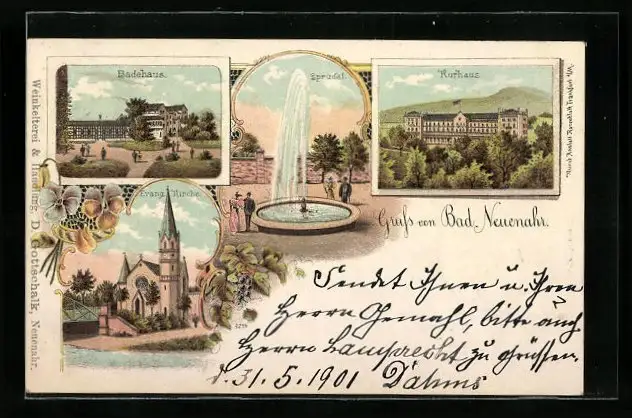 Badehaus.
Sprudel.
Kurhaus.
Evang. Kirche.
Gruss von Bad Neuenahr.
Sendet Ihnen u. Ihren
Herrn Gemahl, bitte auch
Herrn Lamprecht zu grüssen.
d. 31.5.1901 Dahms
Weinkellerei & Handlung, D. Gottschalk, Neuenahr.